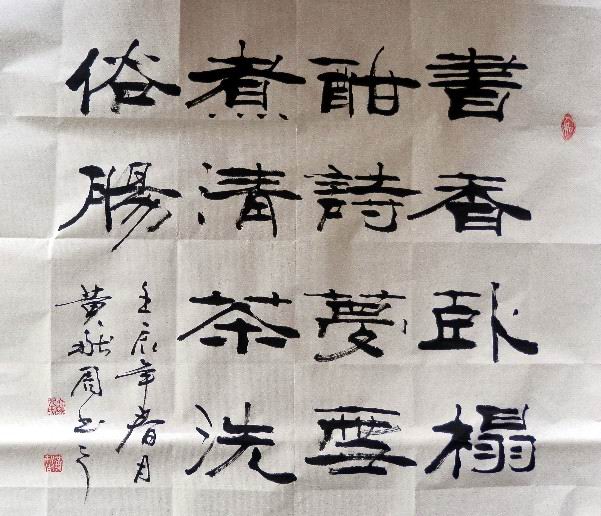 書香卧榻
酣詩夢雪
煮清茶洗
俗腸
壬辰年春月
黄周书之